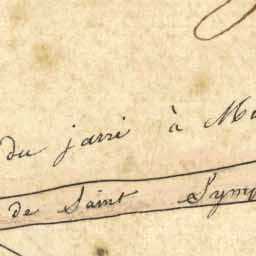 du jarri à Ma
de Saint Symp